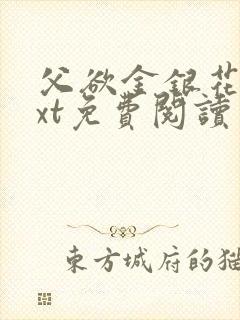 父欲金银花
xt免費閱讀
東方城府的猫